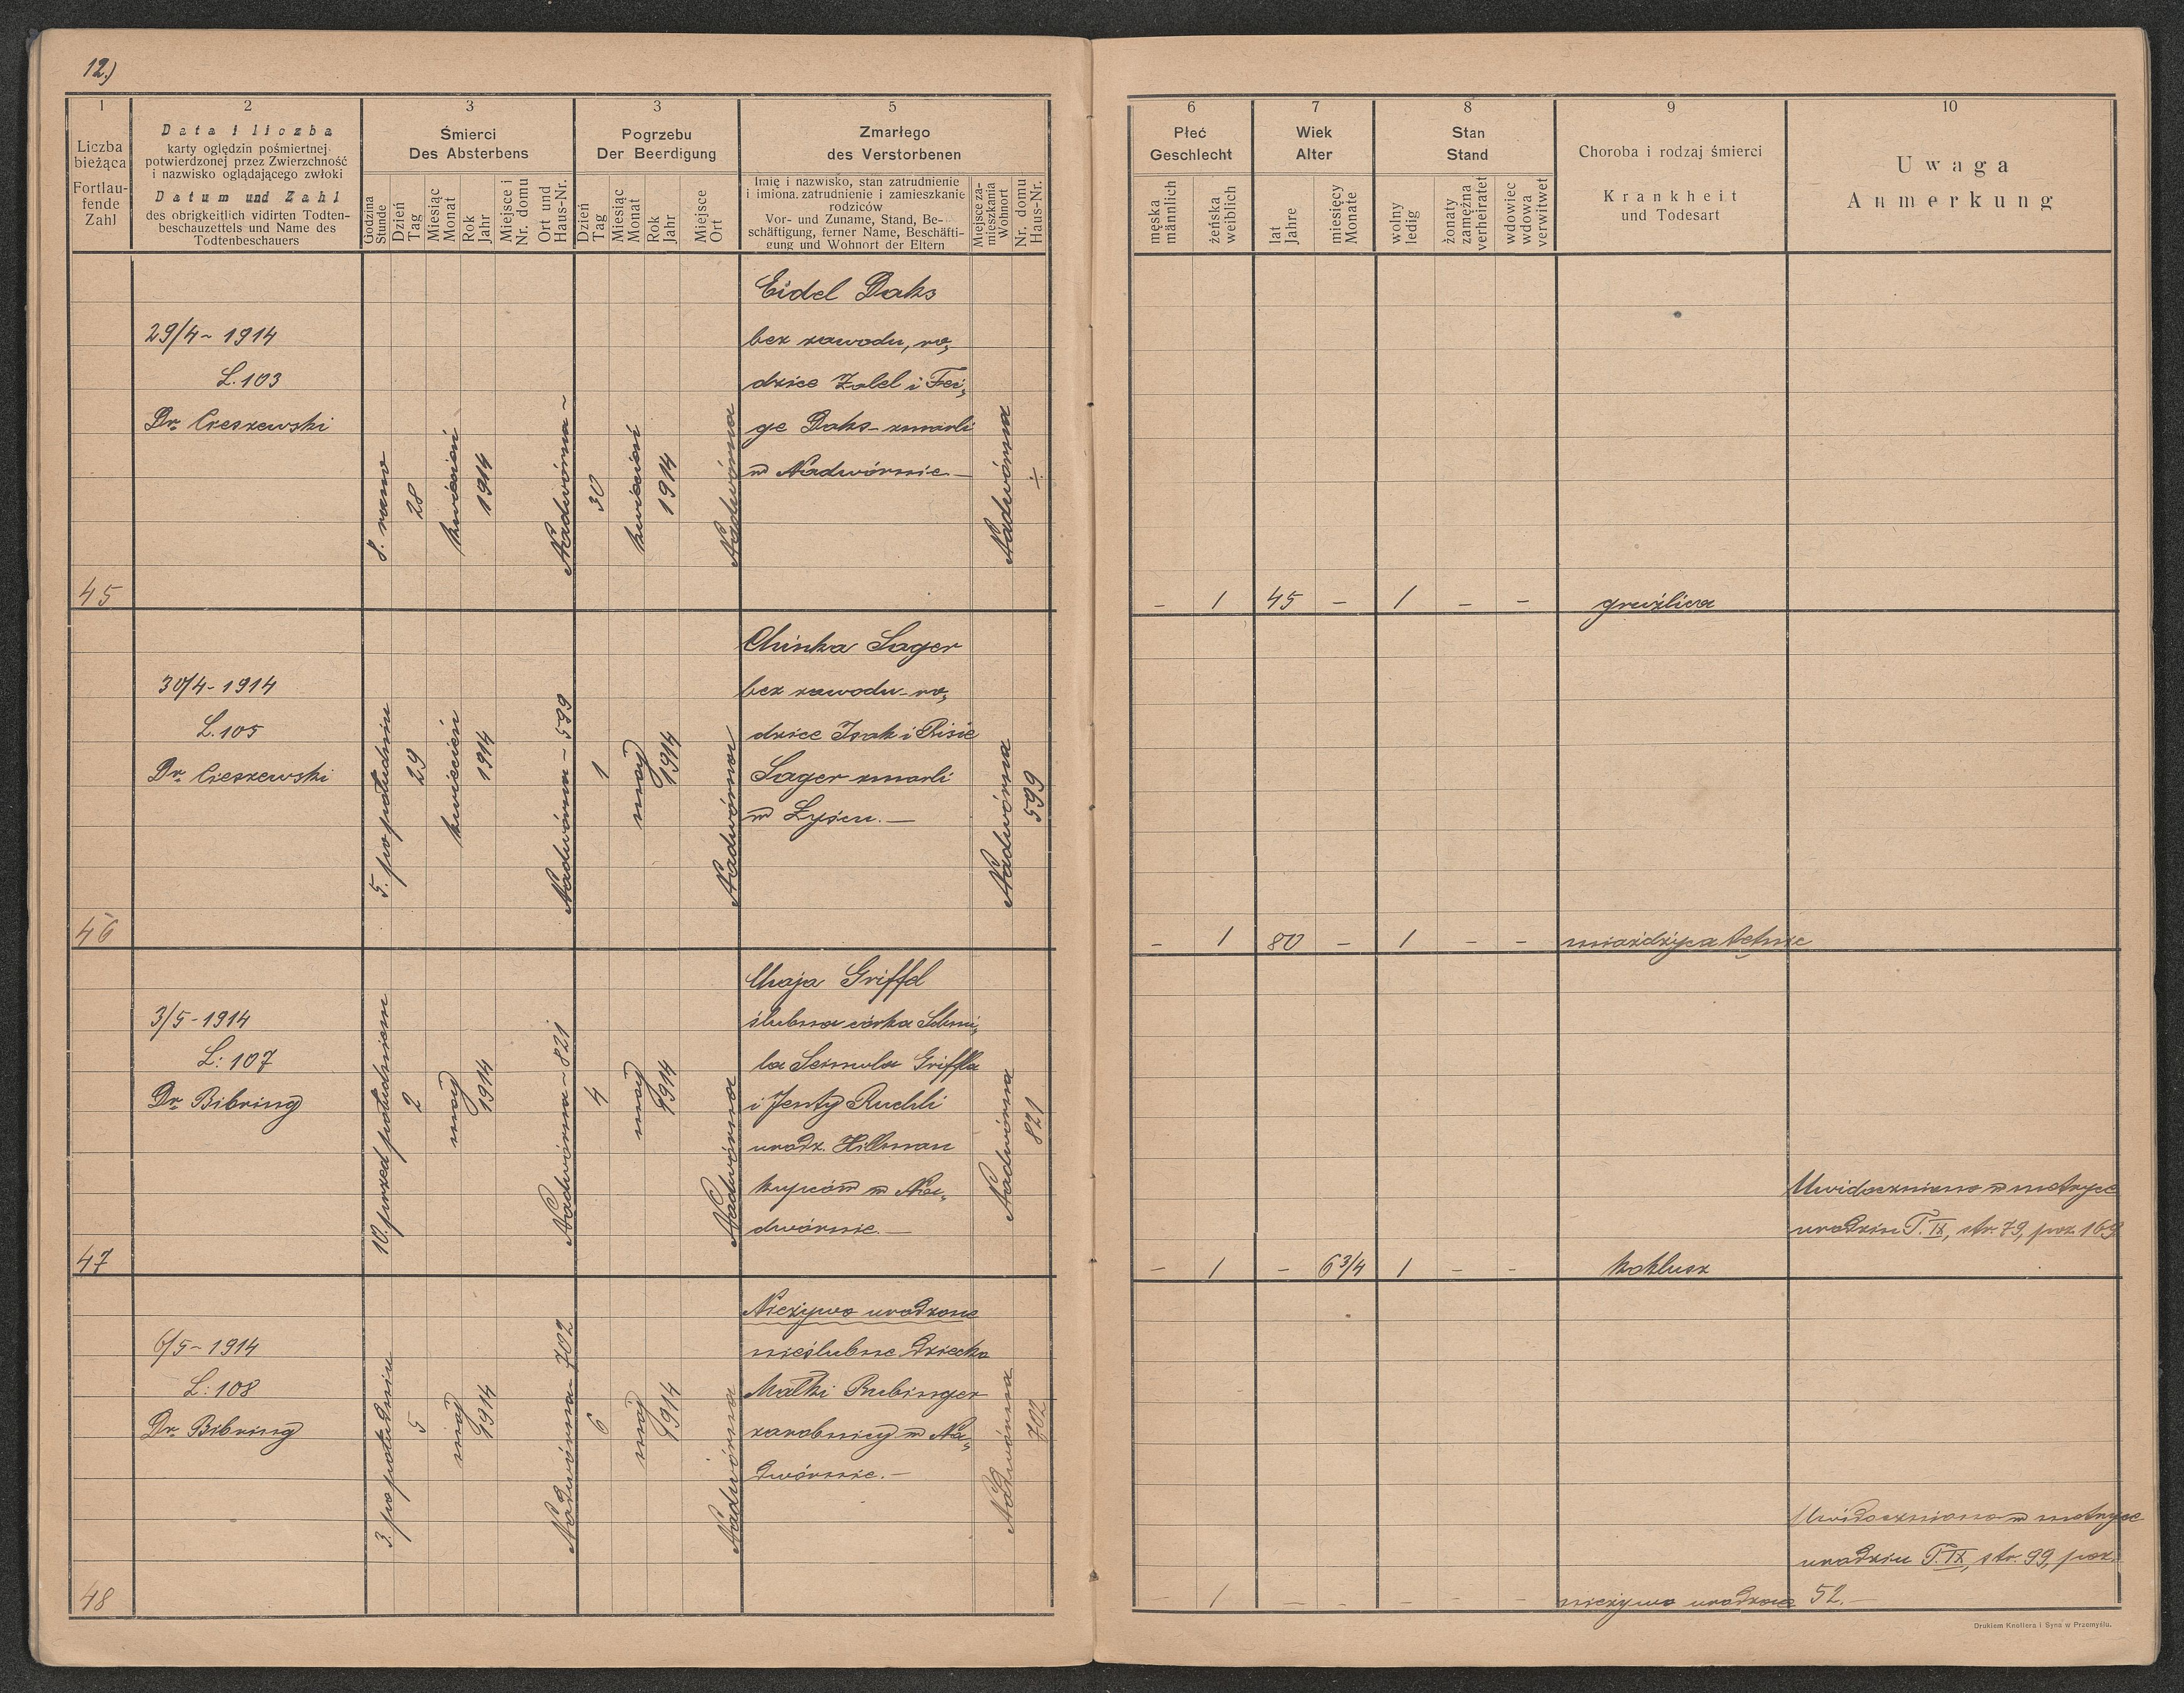 12.)
1
2
3
3
5
Liczba
bieżąca
Fortlau-
fende
Zahl
Data i liczba
karty oględzin pośmiertnej
potwierdzonej przez Zwierzchność
i nazwisko oglądającego zwłoki
Datum und Zahl
des obrigkeitlich vidirten Todten-
beschauzettels und Name des
Todtenbeschauers
Śmierci
Des Absterbens
Godzina
Stunde
Dzień
Tag
Miesiąc
Monat
Rok
Jahr
Miejsce i
Nr. domu
Ort und
Haus-Nr.
Pogrzebu
Der Beerdigung
Dzień
Tag
Miesiąc
Monat
Rok
Jahr
Miejsce
Ort
Zmarłego
des Verstorbenen
Imię i nazwisko, stan zatrudnienie
i imiona, zatrudnienie i zamieszkanie
rodziców
Vor- und Zuname, Stand, Be-
schäftigung, ferner Name, Beschäfti-
gung und Wohnort der Eltern
Miejsce za-
mieszkania
Wohnort
Nr. domu
Haus-Nr.
6
7
8
9
10
Płeć
Geschlecht
męska
männlich
żeńska
weiblich
Wiek
Alter
lat
Jahre
miesięcy
Monate
Stan
Stand
wolny
ledig
żonaty
zamężna
verheiratet
wdowiec
wdowa
verwitwet
Choroba i rodzaj śmierci
Krankheit
und Todesart
Uwaga
Anmerkung
45
29/4 - 1914
L. 103
Dr. Cieszewski
8. rano
28
kwiecień
1914
Nadwórna -
30
kwiecień
1914
Nadwórna
Eidel Daks
bez zawodu, ro„
dzice Zalel i Fei„
ge Daks - zmarli
w Nadwórnie -
Nadwórna
÷
- 1 45 - 1 - - gruźlica
46
30/4 - 1914
L. 105
Dr. Cieszewski
5. po południu
29
kwiecień
1914
Nadwórna - 599
1
maj
1914
Nadwórna
Chinka Sager
bez zawodu - ro„
dzice Isak i Risie
Sager zmarli
w Łyścu. -
Nadwórna
599
- 1 80 - 1 - - miażdżyca tętnic
47
3/5 - 1914
L: 107
Dr. Bibring
10. przed południem
2
maj
1914
Nadwórna - 821
4
maj
1914
Nadwórna
Chaja Griffel
ślubna córka Schmi„
la Griffla
i Jenty Ruchli
urodz. Hillman
kupców w Na„
dwórnie. -
Nadwórna
821
- 1 - 6 3/4 1 - - koklusz
Uwidoczniono w metryce
urodzin T. IX, str. 79, poz. 169
48
6/5 - 1914
L: 108
Dr. Bibring
3. po południu
5
maj
1914
Nadwórna - 702
6
maj
1914
Nadwórna
Nieżywo urodzone
nieślubne dziecko
Małki Rubinger
zarobnicy w Na„
dwórnie. -
Nadwórna
702
- 1 - - - - - nieżywo urodzone
Uwidoczniono w metryce
urodzin T. IX, str. 99, poz.
52. -
Drukiem Knollera i Syna w Przemyślu.